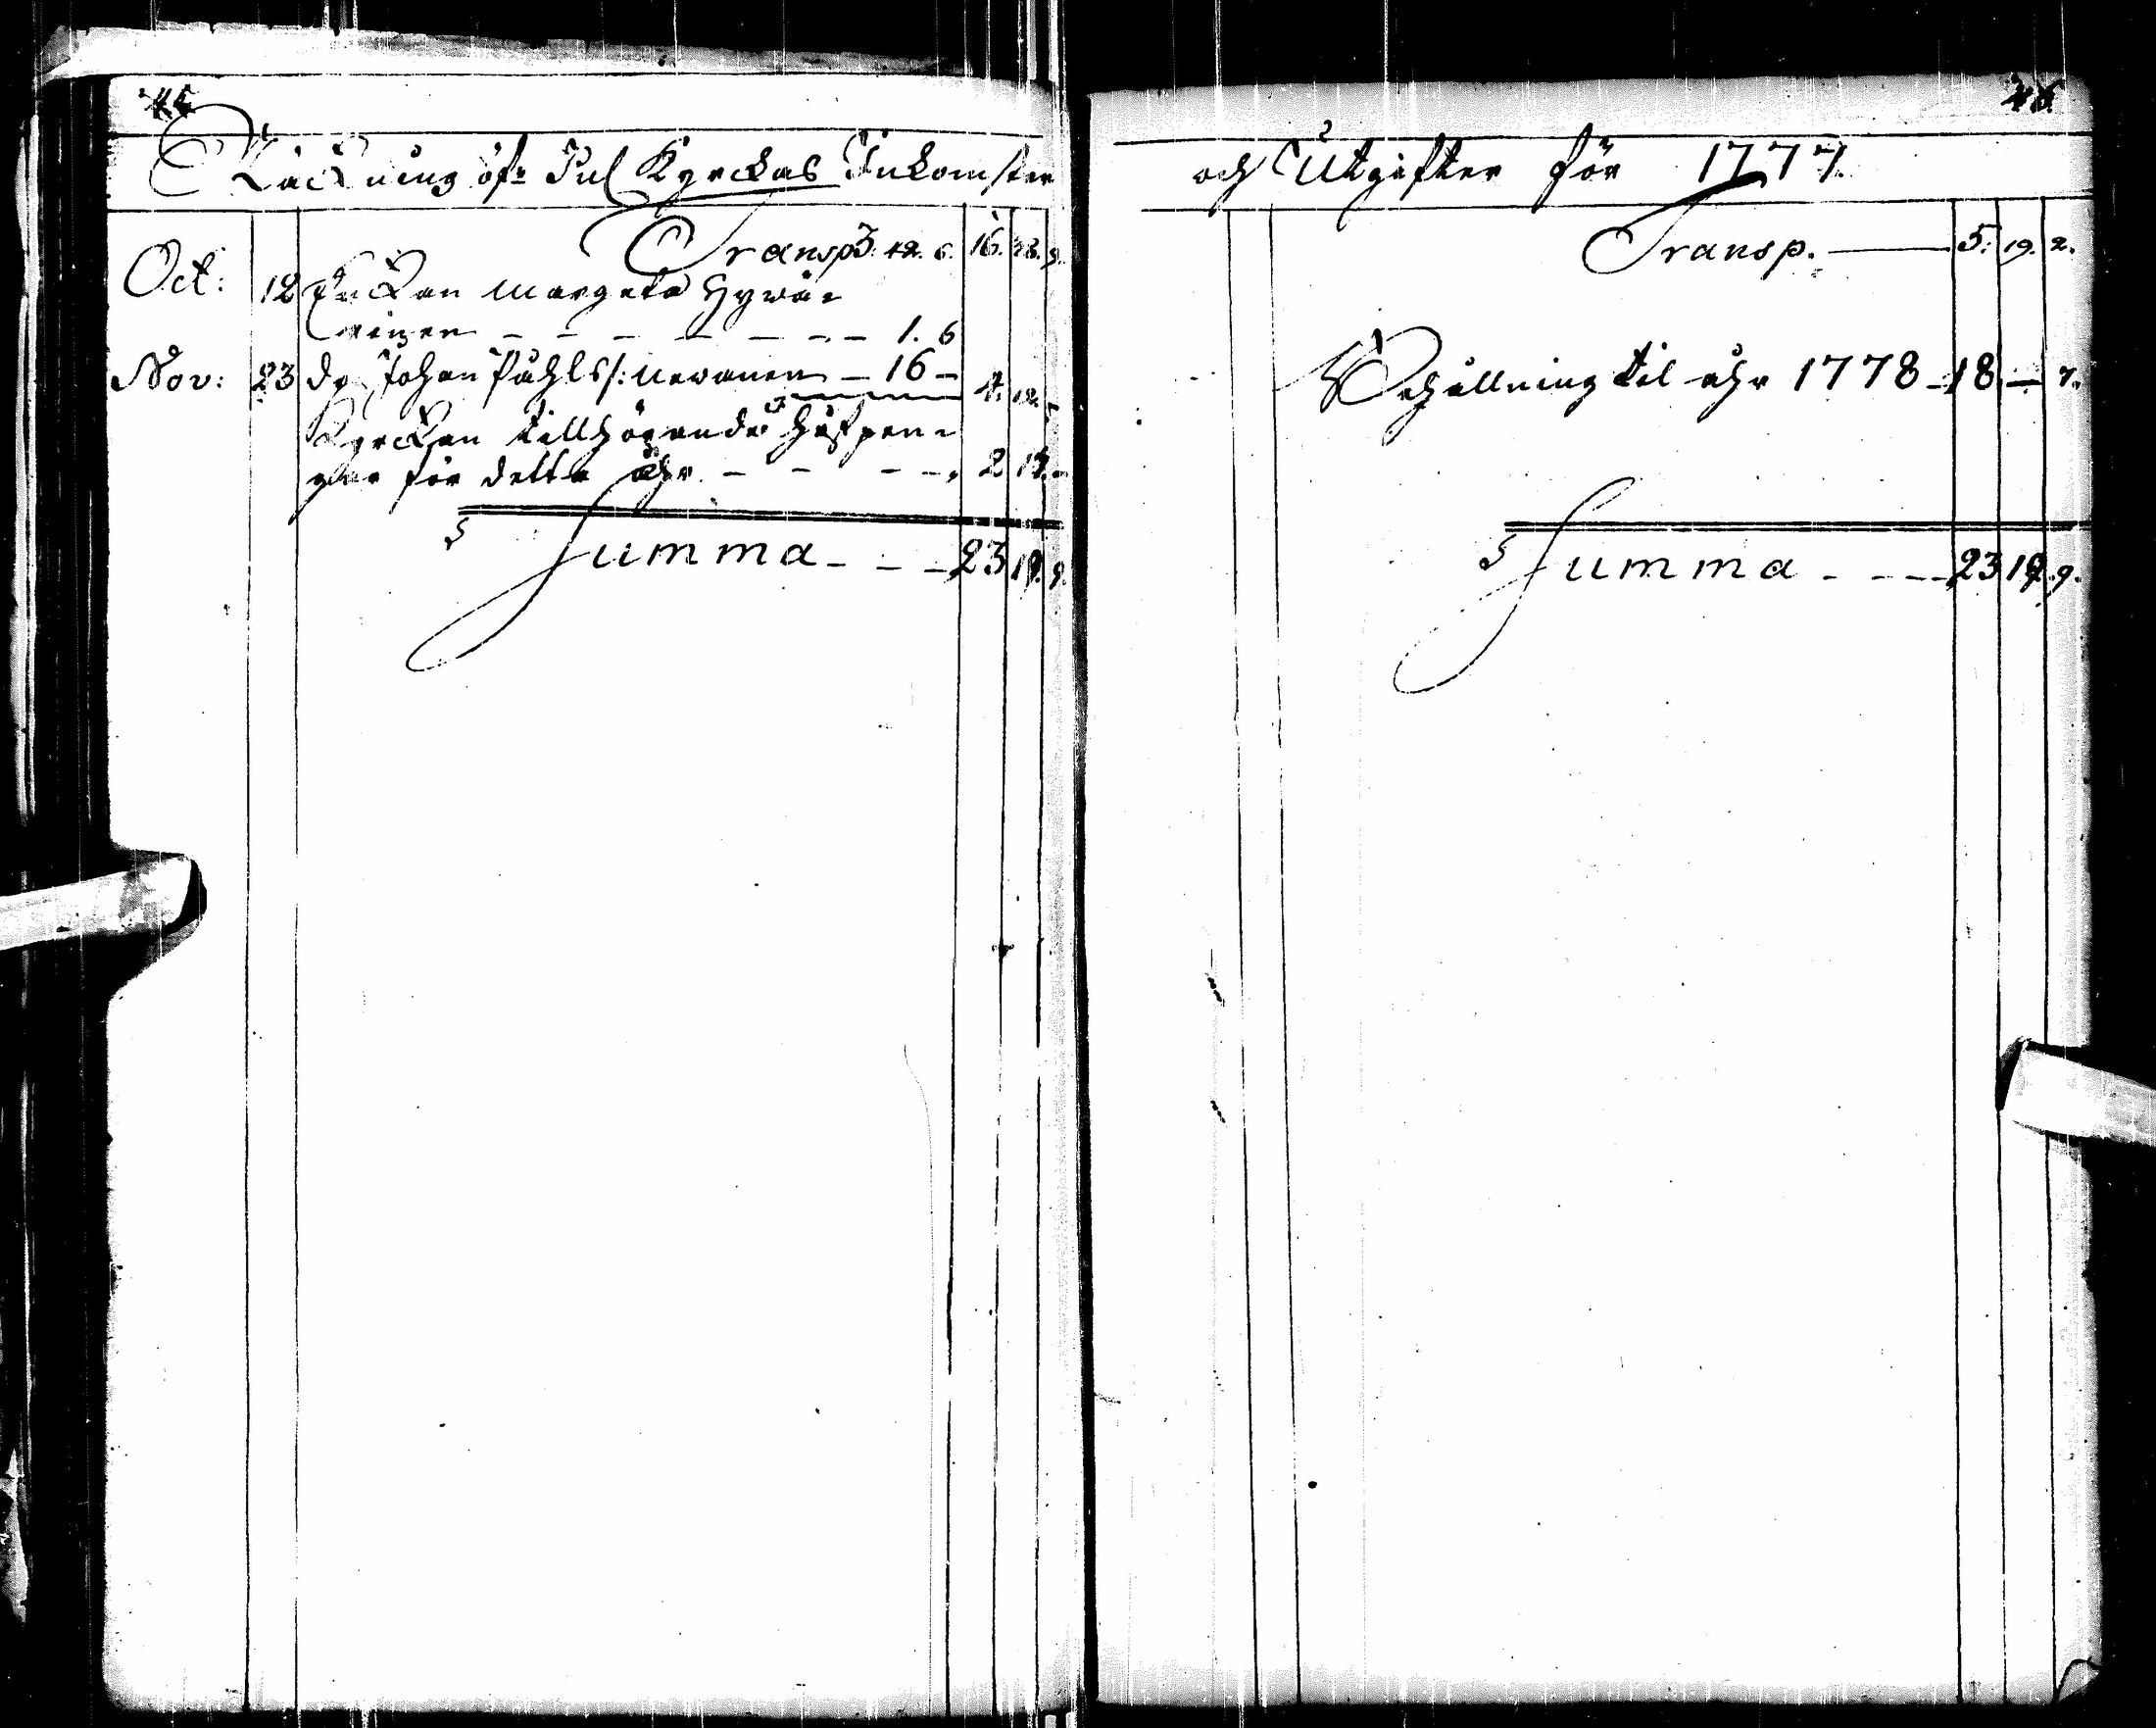 Räckning öfr Jul Kyrckas Inkomster
Transp. 3. 12. 6. 16. 23. 9.
Oct: 12 Änckan Margeta Hyvä-
rinen - - - - - - 1. 6
Nov: 23 do Johan Påhls/: Nevanen - 16 - 4. 12.
Kyrckan tillhörande
gar för detta åhr - - - - 2 15. -
Summa - - - 23 19. 9.
och Utgifter för 1777.
Transp. 5. 19. 2.
Behållning til åhr 1778 - 18 - 7.
Summa - - - 23 19. 9.